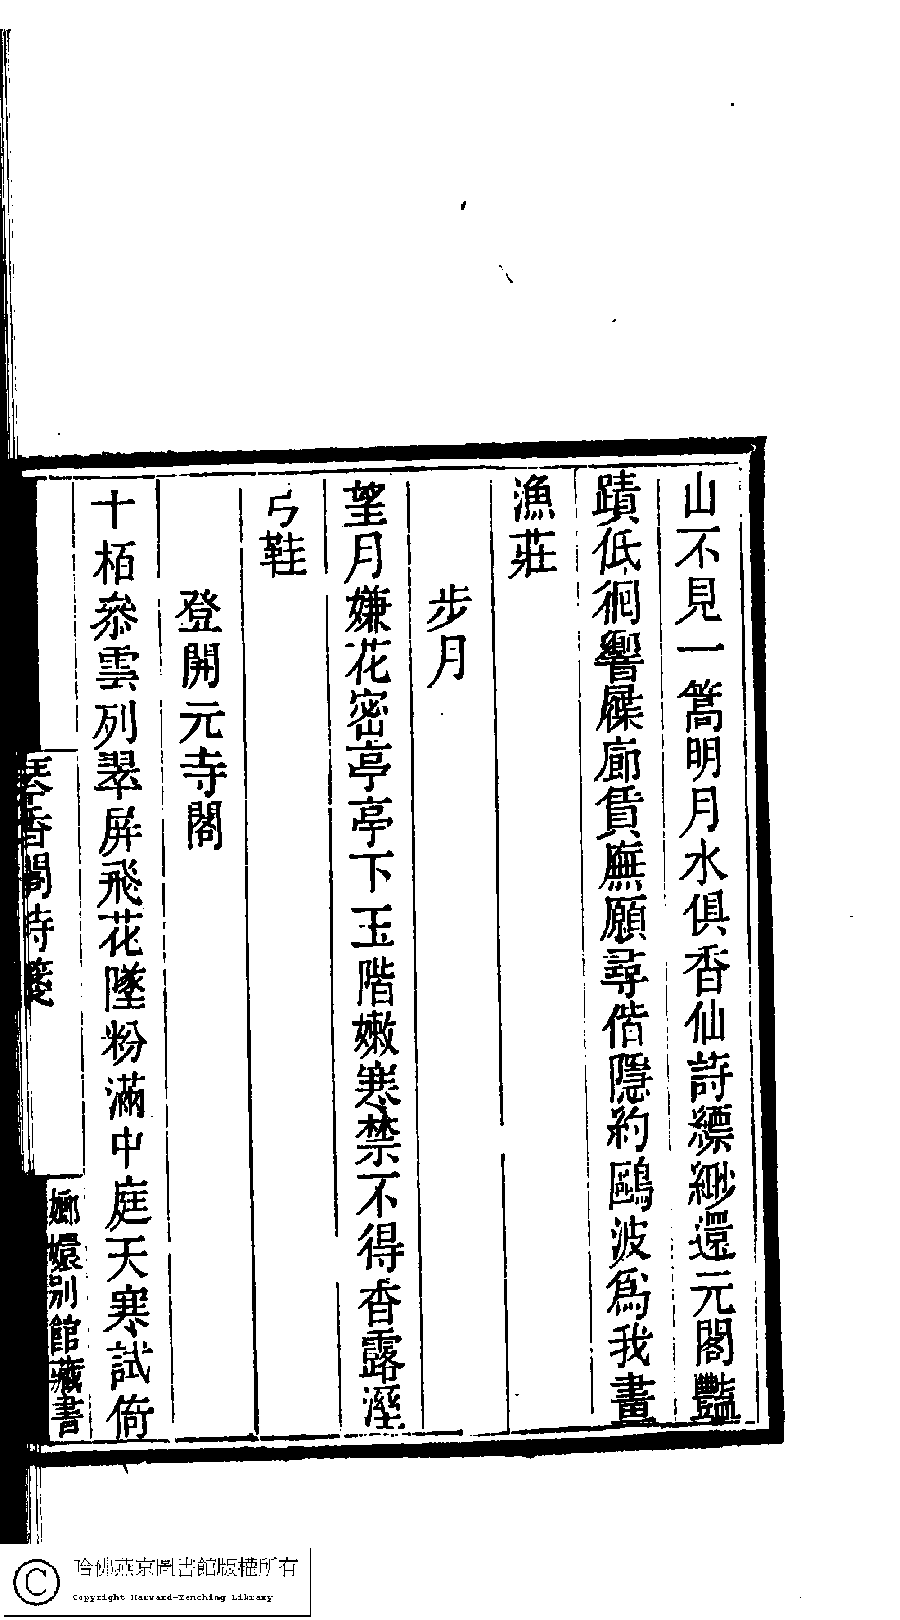 山不見一篙明月水俱香仙詩縹緲還元閣豔
蹟低徊響屧廊賃廡願尋偕隱約鷗波爲我畫
漁莊
步月
望月嫌花密亭亭下玉階嫩寒禁不得香露溼
弓鞋
登開元寺閣
十栢叅雲列翠屏飛花墜粉滿中庭天寒試倚
琴香閣詩箋
嫏嬛别館藏書
哈佛燕京圖書館版權所有
Copyright Harvard-Yenching Library